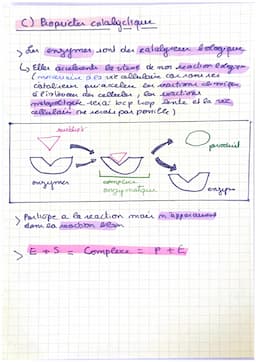 C) Propriétés catalytique
> Les enzymes sont des catalyseur biologique
↳ Elles accélèrent la vitesse de nos reaction biologique
(nécessaire à la vie cellulaire car sans ces
catalyseur pour accelerer les reactions chimiques
à l'intérieur des cellules, les reactions
métabolique sera bcp trop lente et la vie
cellulaire ne serait pas possible)
substrat
produit
enzymes
complexe
enzymatique
enzyme
> Participe a la reaction mais n'apparaissent
dans la reaction bilan
> E + S = Complexe = P + E